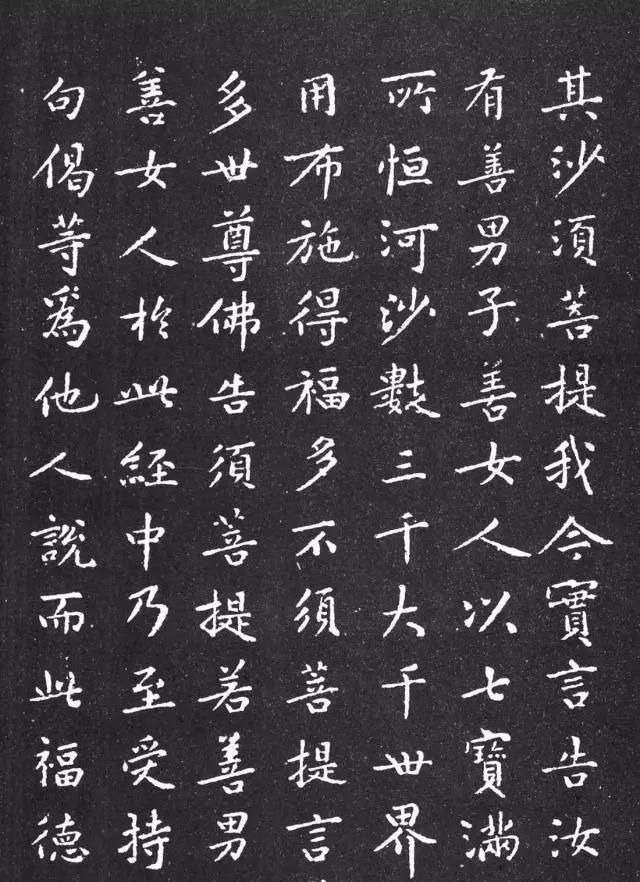 其沙須菩提我今實言告汝
有善男子善女人以七寶滿
所恒河沙數三千大千世界
用布施得福多不須菩提言
多世尊佛告須菩提若善男
善女人於此經中乃至受持
句偈等為他人說而此福德